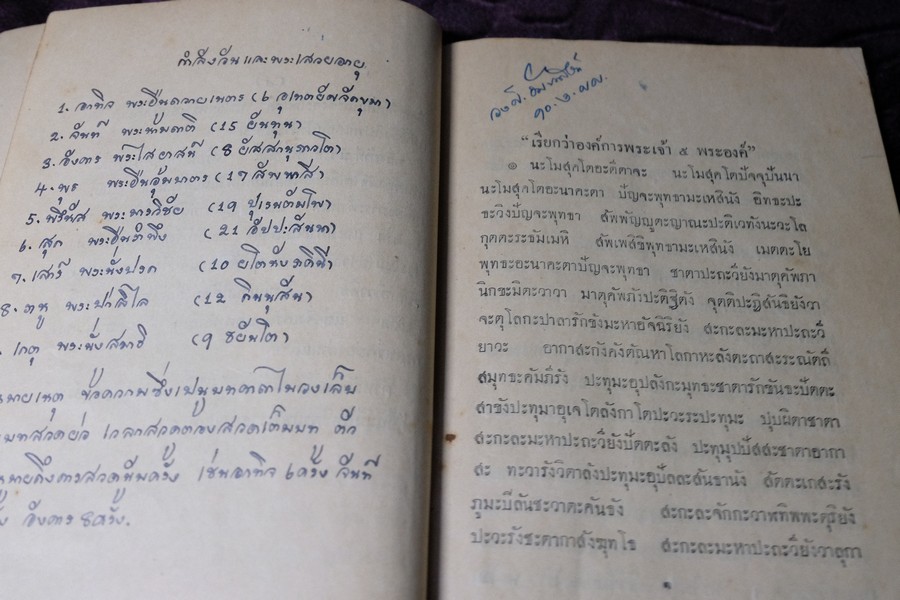 กำลังวันและพระเสวยอายุ
1. อาทิจ พระยืนถวายเนตร (6 อุเทตยัมจักขุมา)
2. จันที พระห้ามญาติ (15 ยันทุน)
3. อังคาร พระไสยาสน์ (8 ยัสสานุภาวโต)
4. พุธ พระยืนอุ้มบาตร (17 สัพพาสี)
5. พฤหัส พระนางวิชัย (19 ปุเรนตัมโพ)
6. สุก พระยืนรำพึง (21 อัปปะสันหา)
๗. เสาร์ พระนั่งปรก (10 ยโตหังภคินี)
8. ราหู พระป่าลิไล (12 กินนุสัน)
. เกตุ พระนั่งสมาธิ (9 ชยันโต)
มายเหตุ ข้อความซึ่งเป็นบทคาถาในวงเล็บ
บทสวดย่อ เวลาสวดต้องสวดเต็มบท ตัว
มายถึงการสวดกี่ครั้ง เช่นอาทิจ 6 ครั้ง จันที
อังคาร 8 ครั้ง.
๑๐.๖.
“เรียกว่าองค์การพระเจ้า ๕ พระองค์”
๑ นะโมสุคโตอะตีตาจะ นะโมสุคโตปัจจุปันนา
นะโมสุคโตอะนาคะตา ปัญจะพุทธานะเหสินัง อิทธะปะ
ธะวังปัญจะพุทธา สัพพัญญุตะญาณะปะติเวทังนะวะโล
กุตตะระธัมเมหิ สัพเพสิขิพุทธานะเหสินัง เมตตะโย
พุทธะอะนาคะตาปัญจะพุทธา ชาตาปะถะวียังมาตุคัพภา
นิกขะมิตะวาวา มาตุคัพภังปะติฐิตัง จุตติปะฏิสันธิยังวา
จะตุโลกะปาลารักขังมะหาอัจฉิริยัง สะกะละมะหาปะถะวี
ยาวะ อากาสะกังคังตัณหาโลกาหะลังคะถาสะระณัตถี
สมุทธะคัมภีรัง ปะทุมะอุปลังกะมุทธะชาตารักขันธะปัตตะ
สาขังปะทุมาอุเจโตลังกาโตปะวะระปะทุมะ ปุบผิตาชาตา
สะกะละมะหาปะถะวียังปัตตะลัง ปะทุมุปปัสสะชาตาอากา
สะ ทะวารังวิตาลังปะทุมะอุปัลละสันธานัง สัตตะเกสะรัง
ภูมะบีสันชะวาตะคันธัง สะกะละจักกะวาฬทิพพะดุริยัง
ปะวะรังชะตากาสังฆุทโธ สะกะละมะหาปะถะวียังวาลุกา